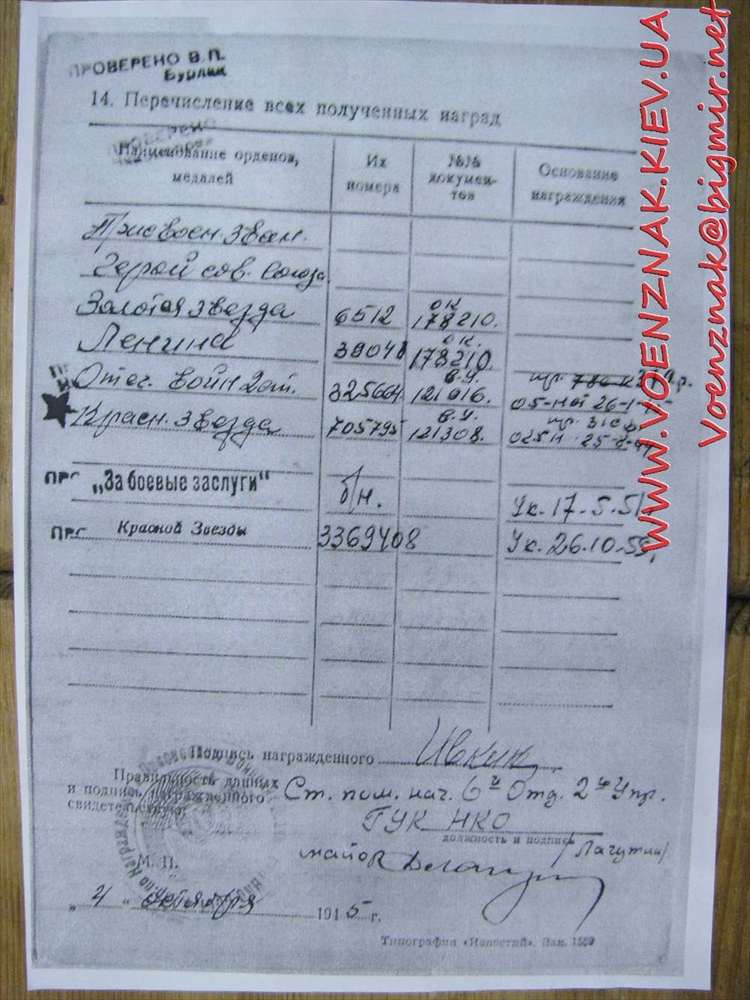 ПРОВЕРЕНО В.П.
Бурлак
14. Перечисление всех полученных наград
ПРОВЕРЕНО
Наименование орденов, медалей
Их номера
№№ документов
Основание награждения
Присвоен. зван.
Герой сов. Союза
Золотая звезда 6512 ок 178210.
Ленина 39048 ок. 178210.
Отеч. войн 2 ст. 325664 в.у. 121016. пр.
Красн. звезда 705795 в.у. 121308. пр.
ПРС „За боевые заслуги“ б/н. Ук. 17.5.51
ПРС Красной Звезды 3369408 Ук. 26.10.55
Подпись награжденного Ивкин
Правильность данных
и подпись награжденного
свидетельствую:
Ст. пом. нач. 6й Отд. 2й Упр.
ГУК НКО
должность и подпись
майор /Лагутин/
М. П.
„4“ октября 1945 г.
Типография «Известий». Зак. 1559
WWW.VOENZNAK.KIEV.UA
Voenznak@bigmir.net